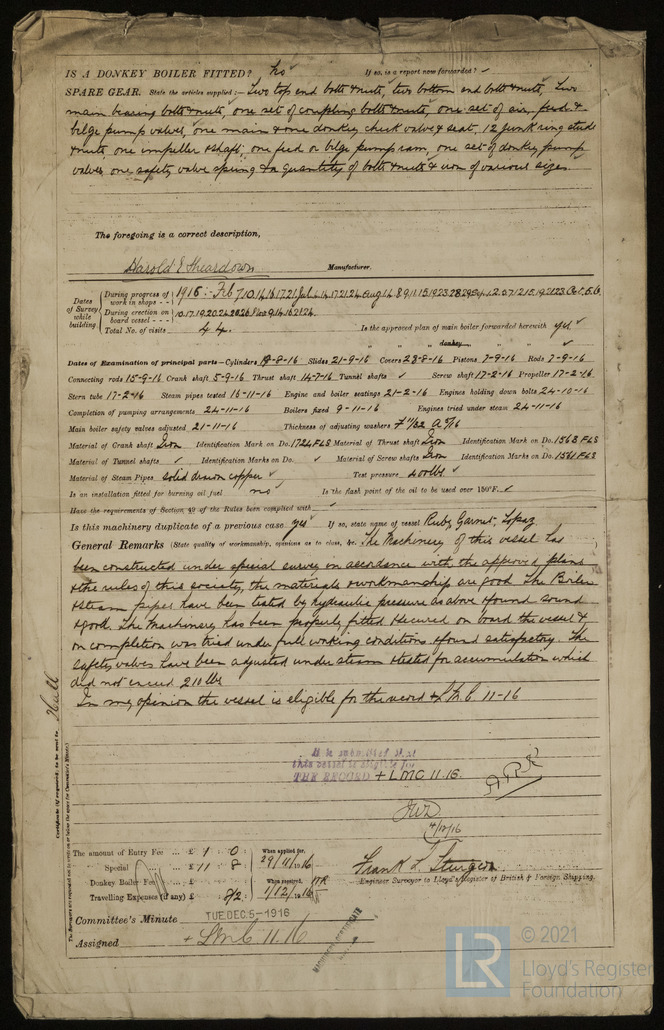 IS A DONKEY BOILER FITTED? no If so, is a report now forwarded? ✓
SPARE GEAR. State the articles supplied:— Two top end bolts & nuts, two bottom end bolts & nuts, Two
main bearing bolts & nuts, one set of coupling bolts & nuts, one set of air, feed &
bilge pump valves, one main & one donkey check valve & seat, 12 junk ring studs
& nuts, one impeller & shaft, one feed or bilge pump ram, one set of donkey pump
valves, one safety valve spring & a quantity of bolts & nuts & iron of various sizes
The foregoing is a correct description,
Harold E Sheardown Manufacturer.
Dates of Survey while building
During progress of work in shops - - 1916:- Feb 7.10.14.16.17.21 Jul
During erection on board vessel - - - 10.17.19.20.24.28.26 Nov 9.14.16.21.24.
Total No. of visits 44. Is the approved plan of main boiler forwarded herewith yes ✓
" " " donkey " " " ✓
Dates of Examination of principal parts—Cylinders 18-8-16 Slides 21-9-16 Covers 28-8-16 Pistons 7-9-16 Rods 7-9-16
Connecting rods 15-9-16 Crank shaft 5-9-16 Thrust shaft 14-7-16 Tunnel shafts ✓ Screw shaft 17-2-16 Propeller 17-2-16
Stern tube 17-2-16 Steam pipes tested 16-11-16 Engine and boiler seatings 21-2-16 Engines holding down bolts 24-10-16
Completion of pumping arrangements 24-11-16 Boilers fixed 9-11-16 Engines tried under steam 24-11-16
Main boiler safety valves adjusted 21-11-16 Thickness of adjusting washers
Material of Crank shaft Iron Identification Mark on Do. 1724 FLS Material of Thrust shaft Iron Identification Mark on Do. 1563 FLS
Material of Tunnel shafts ✓ Identification Marks on Do. ✓ Material of Screw shafts Iron Identification Marks on Do. 1561 FLS
Material of Steam Pipes solid drawn copper ✓ Test pressure 400 lbs ✓
Is an installation fitted for burning oil fuel no ✓ Is the flash point of the oil to be used over 150°F. ✓
Have the requirements of Section 49 of the Rules been complied with ✓
Is this machinery duplicate of a previous case yes ✓ If so, state name of vessel Ruby, Garnet, Topaz
General Remarks (State quality of workmanship, opinions as to class, &c. The Machinery of this vessel has
been constructed under special survey in accordance with the approved plans
& the rules of this society, the materials & workmanship are good The Boiler
& steam pipes have been tested by hydraulic pressure as above & found sound
& good. The Machinery has been properly fitted & secured on board the vessel &
on completion was tried under full working conditions & found satisfactory. The
safety valves have been adjusted under steam & tested for accumulation which
did not exceed 210 lbs
In my opinion the vessel is eligible for the record + LMC 11-16
It is submitted that
this vessel is eligible for
THE RECORD + LMC 11.16.
JWD
4/12/16
Certificate (if required) to be sent to Hull
The amount of Entry Fee ... £ 1 : 0 : When applied for,
Special ... ... £ 11 : 8 : 29/11/1916
Donkey Boiler Fee ... £ : : When received,
Travelling Expenses (if any) £ : 8/2 : 1/12/1916
Frank L. Sturgeon
Engineer Surveyor to Lloyd's Register of British & Foreign Shipping.
Committee's Minute TUE.DEC.5-1916
Assigned + LMC 11.16
MACHINERY CERTIFICATE
LR © 2021
Lloyd's Register
Foundation